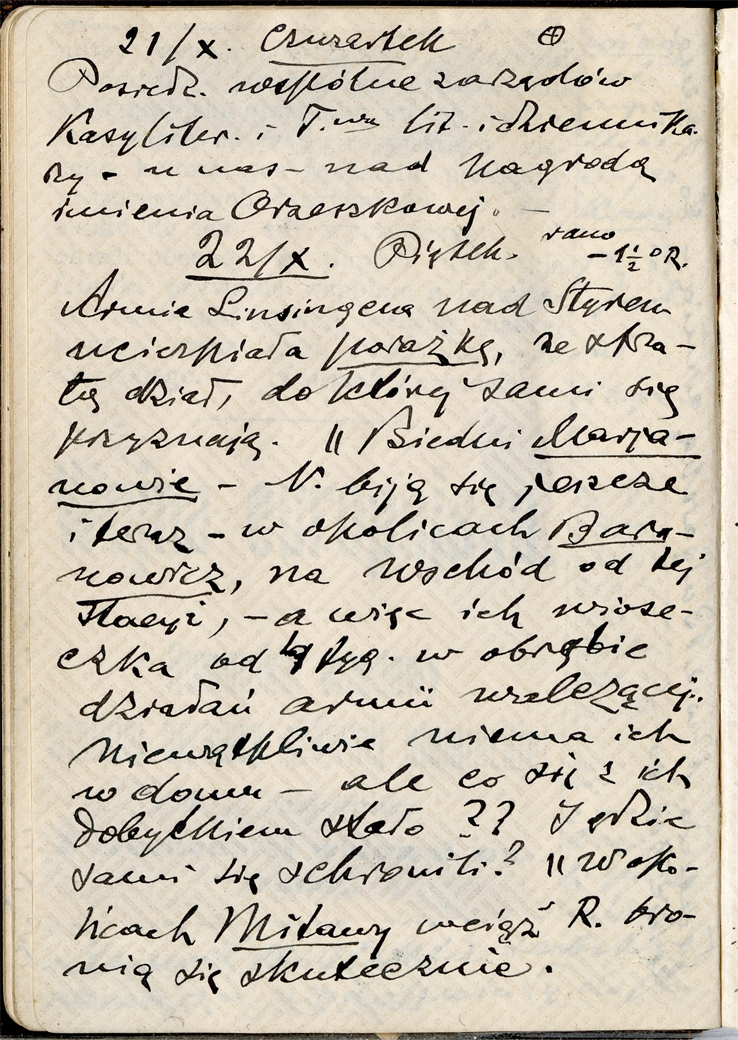 21/X. Czwartek ⊕
Posiedz. wspólne zarządów
Kasy liter. i T.wa lit. i dziennika-
rzy - u nas - nad nagrodą
imienia Orzeszkowej. —
22/X. Piątek. rano - 1½° R.
Armia Linsingena nad Styrem
ucierpiała porażkę, ze stra-
tą dział, do której sami się
przyznają. || Biedni Marja-
nowie - N. biją się jeszcze
i teraz - w okolicach Bara-
nowicz, na wschód od tej
stacyi, - a więc ich wiose-
czka od tyg. w obrębie
działań armii walczącej.
Niewątpliwie niema ich
w domu - ale co się z ich
dobytkiem stało ?? I gdzie
sami się schronili? || W oko-
licach Mitawy wciąż R. bro-
nią się skutecznie.